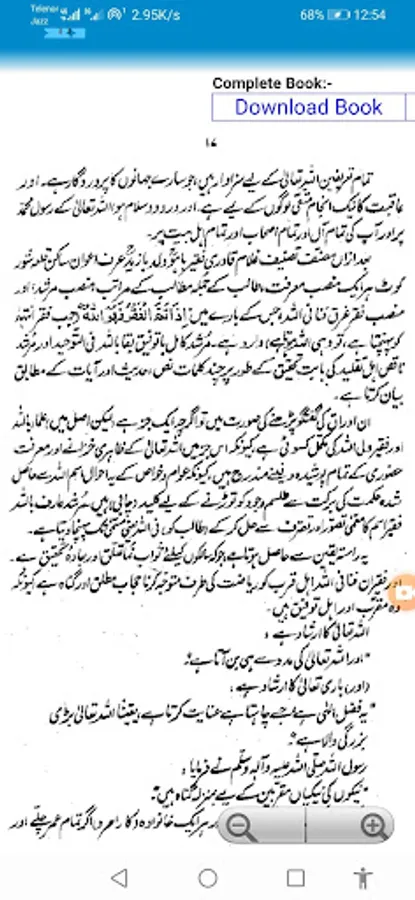 Telenor
Jazz
2.95K/s
68%
12:54
Complete Book:-
Download Book
۱۴
تمام تعریفیں اللہ تعالیٰ کے لیے سزاوار ہیں جو سارے جہانوں کا پروردگار ہے۔ اور
عاقبت کا نیک انجام متقی لوگوں کے لیے ہے، اور درود و سلام ہو اللہ تعالیٰ کے رسول محمدؐ
پر اور آپ کی تمام آل اور تمام اصحاب اور تمام اہل بیت پر۔
بعد ازاں مصنف تصنیف غلام قادری فقیر باھوؒ ولد بازیدؒ عرف اعوان ساکن قلعہ شور
کوٹ ہر ایک منصب معرفت، طالب کے قبلہ مطالب کے مراتب، منصب مرشد، اور
منصب فقر غرق فنا فی اللہ جس کے بارے میں اِذَا تَمَّ الْفَقْرُ فَهُوَ اللهُ (جب فقر انتہا
کو پہنچتا ہے، تو وہی اللہ ہوتا ہے) وارد ہے۔ مرشد کامل با توفیق بقا باللہ فی التوحید اور مرشد
ناقص اہل تقلید کی بابت تحقیق کے طور پر چند کلمات نص، احدیث اور آیات کے مطابق
بیان کرتا ہے۔
ان اوراق کی گفتگو پڑھنے کی صورت میں تو اگرچہ ایک جز ہے لیکن اصل میں علماء باللہ
اور فقیر ولی اللہ کی مکمل کسوٹی ہے کیونکہ اس جز میں اللہ تعالیٰ کے ظاہری خزانے اور معرفت
حضوری کے تمام پوشیدہ دفینے مندرج ہیں، کیونکہ عوام و خواص کے یا حوال اسم اللہ سے حاصل
شدہ حکمت کی برکت سے طلسم وجود کو توڑنے کے لیے کلید دجابی، ہیں مرشد عارف باللہ
فقیر اسم کا معمٰی تصور اور تصرف سے حل کر کے طالب کو فی اللہ تک پہنچا دیتا ہے۔
یہ راستہ یقین سے حاصل ہوتا ہے جو کہ سالکوں کیلئے ثواب تعلق اور جادۂ تحقیق ہے۔
اور فقیران فنا فی اللہ اہل قرب کو ریاضت کی طرف متوجہ کرنا حجاب مطلق اور گناہ ہے کیونکہ
وہ مقرب اور اہل توفیق ہیں۔
اللہ تعالیٰ کا ارشاد ہے :
"اور اللہ تعالیٰ کی مدد سے ہی بن آتا ہے"۔
(اور باری تعالیٰ کا ارشاد ہے :
"یہ فضل الٰہی ہے جسے چاہتا ہے عنایت کرتا ہے یقیناً اللہ تعالیٰ بڑی
بزرگی والا ہے"۔
رسول اللہ صلی اللہ علیہ وآلہ وسلم نے فرمایا :
"نیکوں کی نیکیاں مقربین کے لیے بمنزلہ گناہ ہیں"۔
ہر ایک خانوادہ کا راہرو اگر تمام عمر چلّے اور